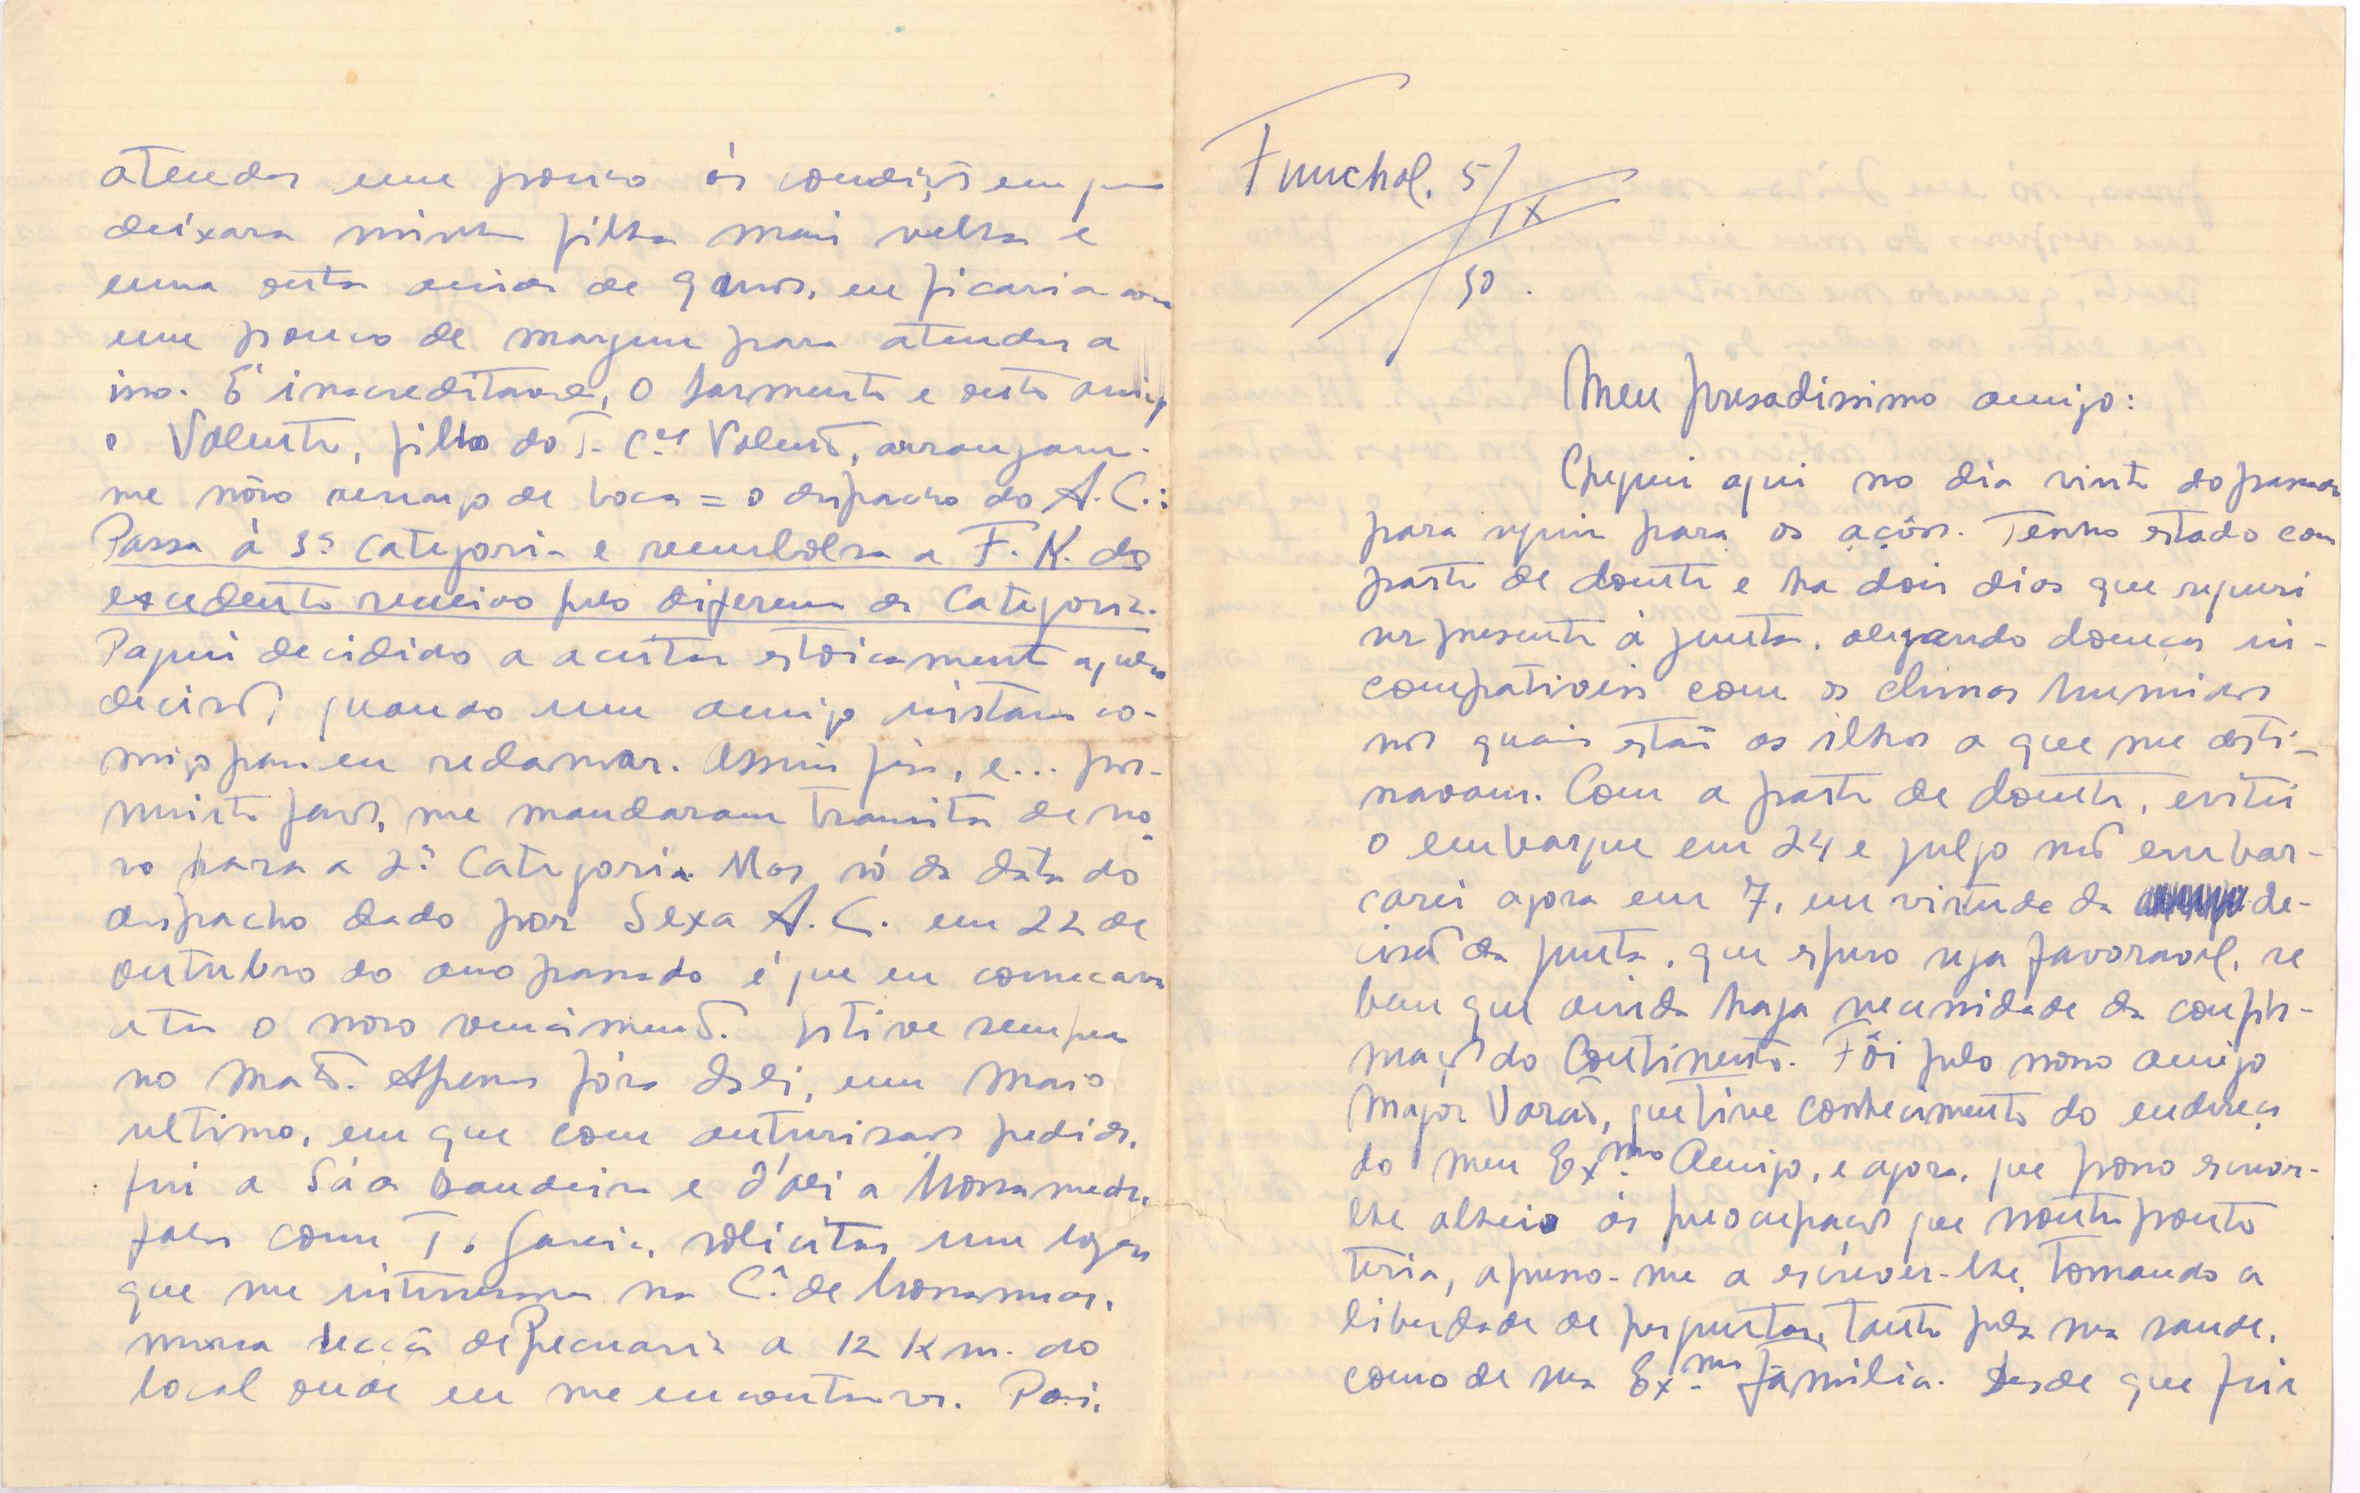 Funchal. 5/
IX
50.
Meu presadissimo amigo:
Cheguei aqui no dia vinte do passado
para seguir para os açôres. Tenho estado com
parte de doente e ha dois dias que requeri
ser presente á junta, alegando doença in-
compativeis com os climas humidos
nos quais estão as ilhas a que me desti-
navam. Com a parte de doente, evitei
o embarque em 24 e julgo não embar-
carei agora em 7, em virtude da de-
cisão da junta, que espero seja favoravel, se
bem que ainda haja necessidade da confir-
mação do Continente. Fôi pelo nosso amigo
Major Varão, que tive conhecimento do endereço
do meu Exmo Amigo, e agora, que posso escrever-
lhe alheio ás preocupações que noutro ponto
teria, apresso-me a escrever-lhe, tomando a
liberdade de perguntar, tanto pela sua saude,
como de sua Exma familia. Desde que fui
atender um pouco ás condições em que
deixara minha filha mais velha e
uma outra ainda de 9 anos, eu ficaria com
um pouco de margem para atender a
isso. É inacreditavel, o Sarmento e outro amigo
o Valente, filho do T. Cel Valente, arranjam-
me nôvo remanso de boca = o despacho do A. C.:
Passa á 3ª categoria e reembolsa a F. N. do
excedente recebido pela diferença de Categoria.
Paguei decidido a aceitar estoicamente aquela
decisão, quando um amigo instava co-
migo para eu reclamar. Assim fiz, e... por
muito favor, me mandaram transitar de no-
vo para a 2ª Categoria. Mas só da data do
despacho dado por Sexa A. C. em 22 de
outubro do ano passado é que eu começava
a ter o novo vencimento. Estive sempre
no mato. Apenas fóra dali, em Maio
ultimo, em que com autorisação pedida,
fui a Sá da Bandeira e d'ali a Mossamedes,
falar com T. Garcia, solicitar um logar
que me interessava na Cª de Mossamedes,
numa secção de Pecuaria a 12 Km. do
local onde eu me encontrava. Pois,